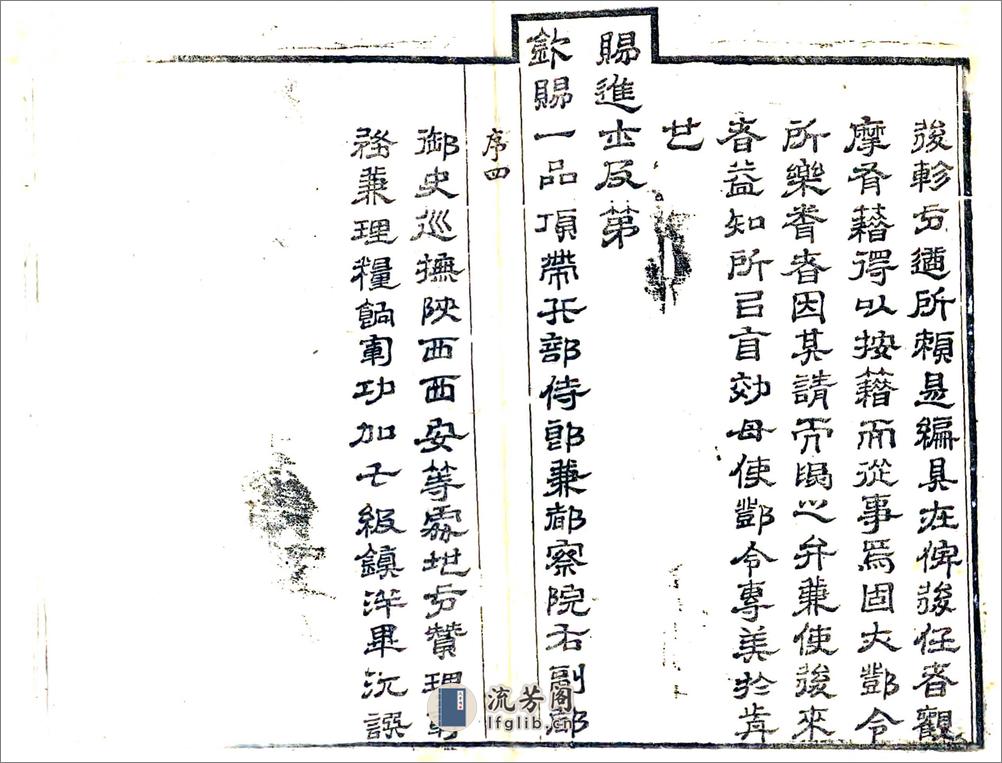 後軫方遒所賴是編具在俾後任者觀
摩胥藉得以按籍而從事焉固大鄧令
所樂胥者因其請而之弁兼使後來
者益知所㠯自効毋使鄧令專美於前
也
賜進士及第
欽賜一品頂帶兵部侍郎兼都察院右副都
序四
御史巡撫陝西西安等處地方贊理軍
務兼理糧餉軍功加七級鎮洋畢沅譔
流芳阁
lfglib.cn